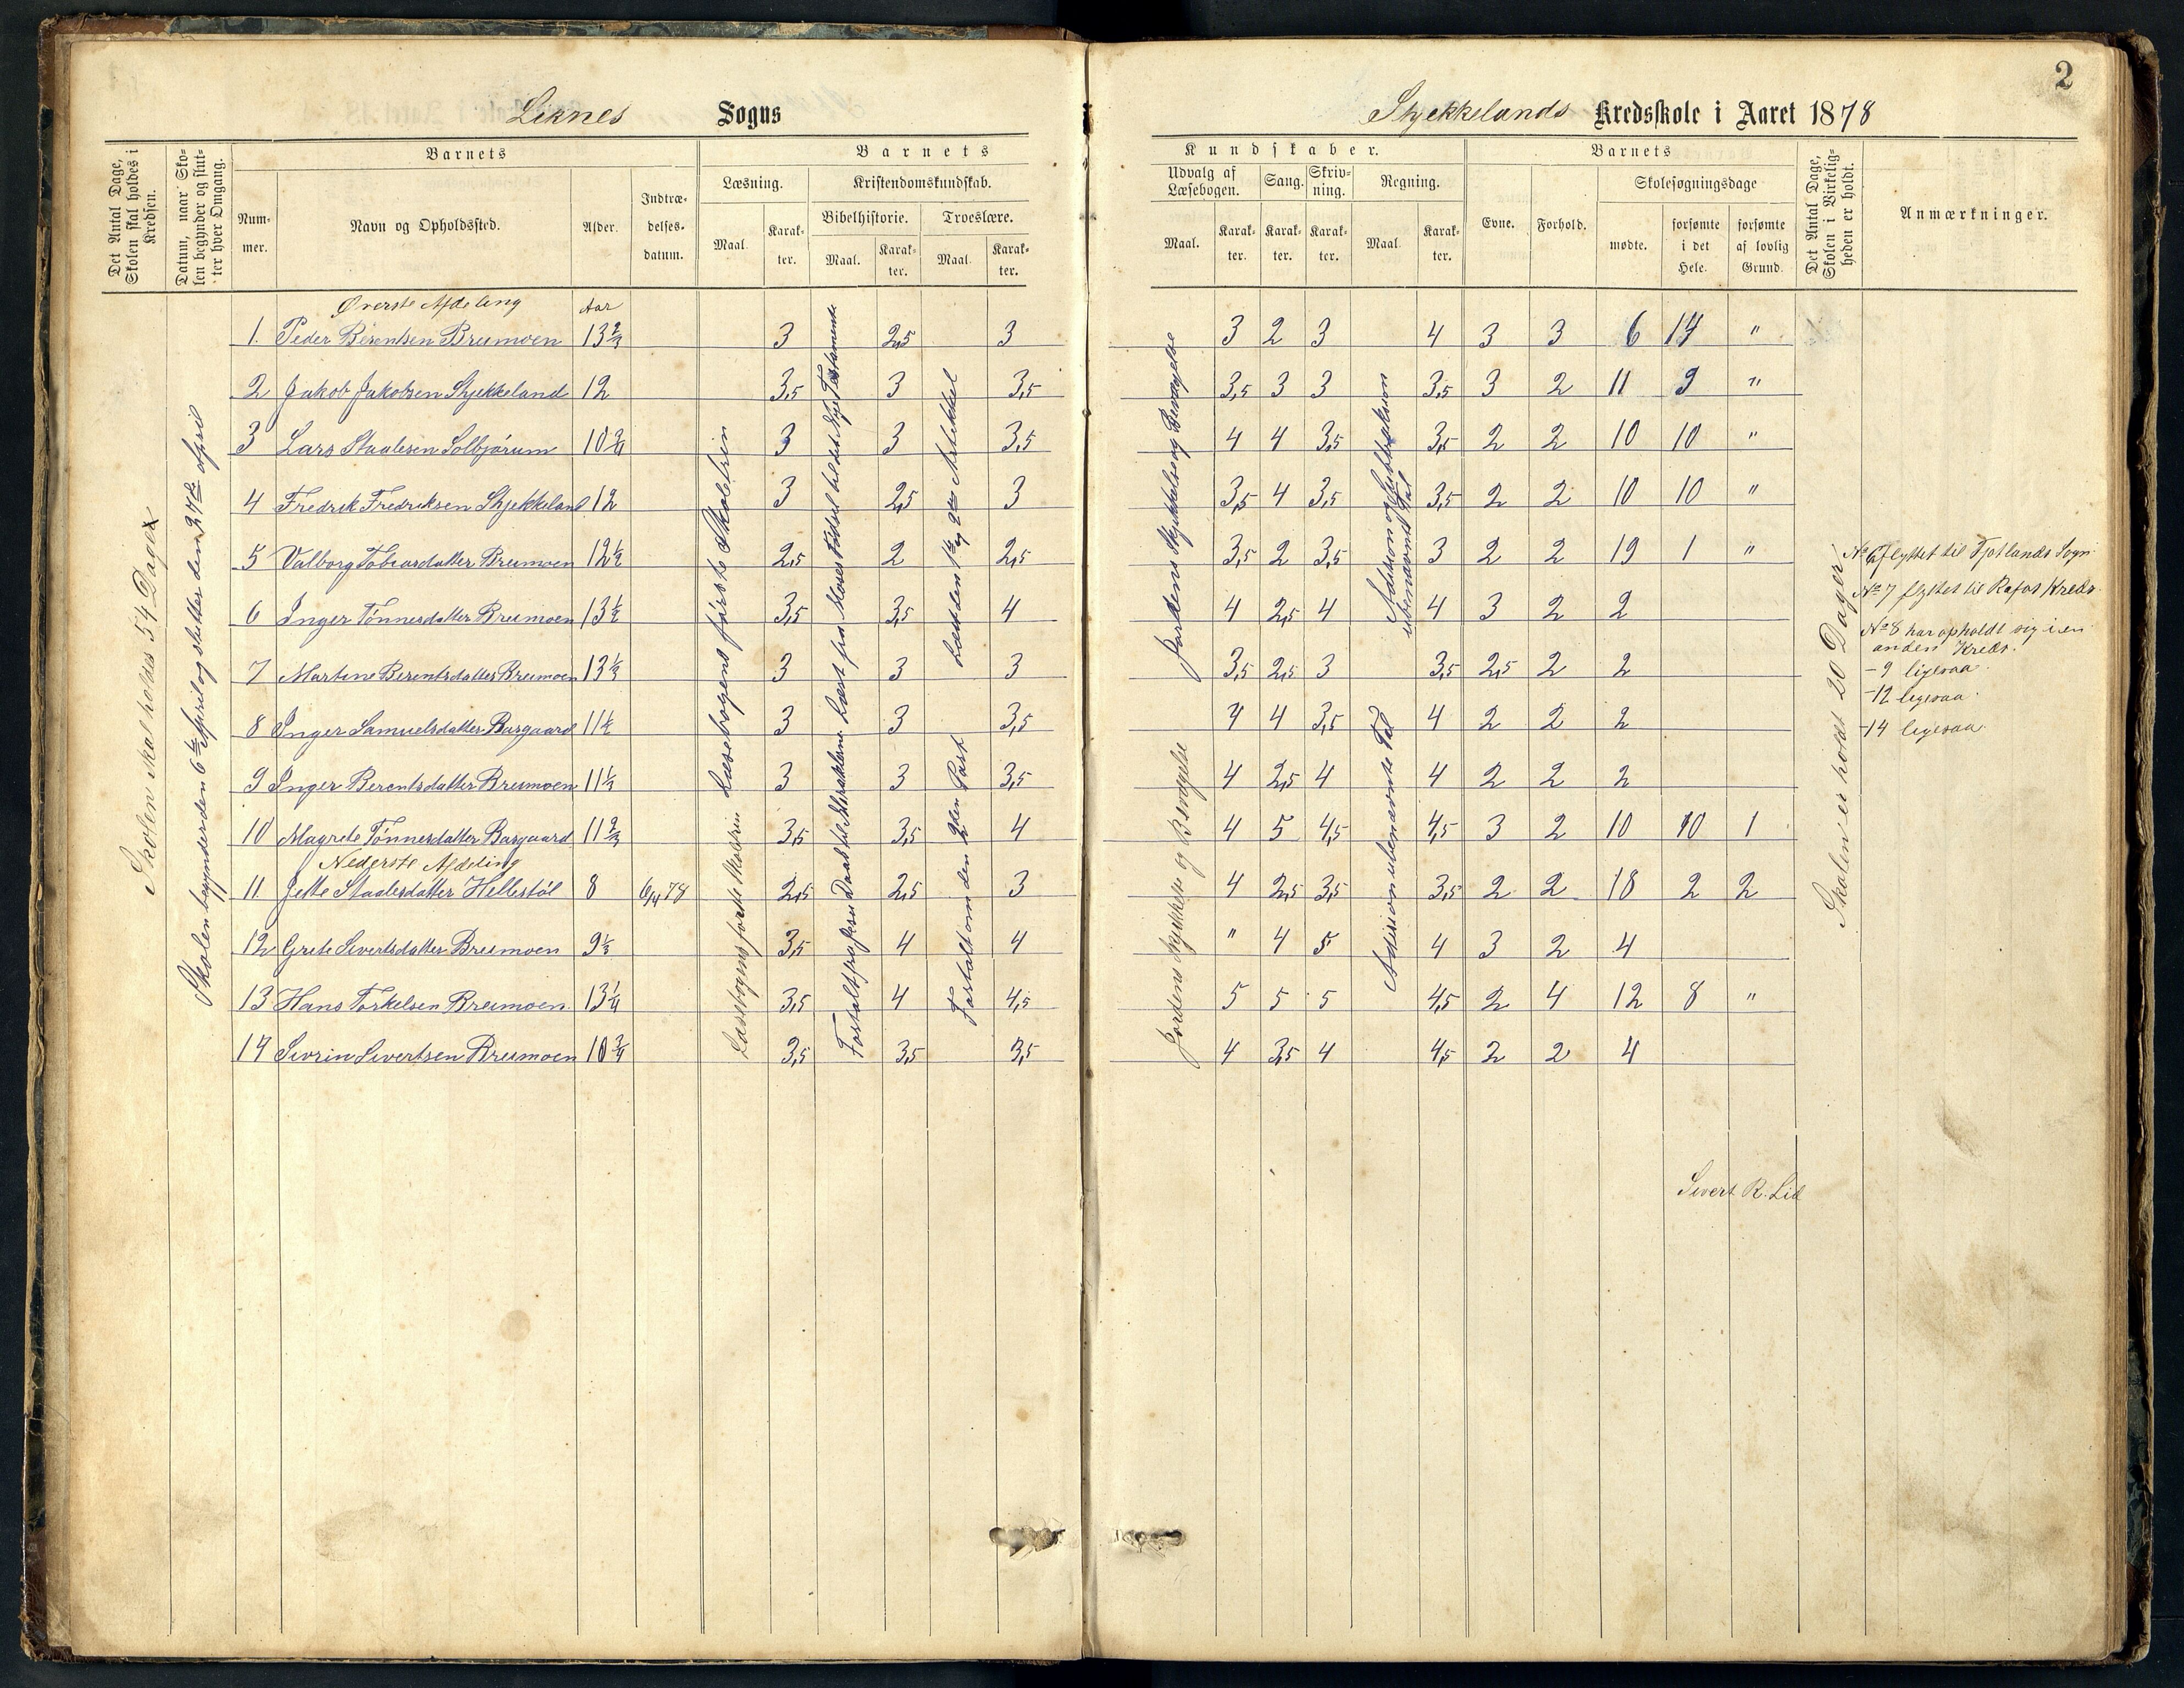 Liknes Sogns
Stjekkelands Kredsskole i Aaret 1878
2
Det Antal Dage, Skolen skal holdes i Kredsen.
Datum, naar Skolen begynder og slutter hver Omgang.
Barnets
Nummer.
Navn og Opholdssted.
Alder.
Indtrædelsesdatum.
Barnets
Læsning.
Maal.
Karakter.
Kristendomskundskab.
Bibelhistorie.
Maal.
Karakter.
Troeslære.
Maal.
Karakter.
Kundskaber.
Udvalg af Læsebogen.
Maal.
Karakter.
Sang.
Karakter.
Skrivning.
Karakter.
Regning.
Maal.
Karakter.
Barnets
Evne.
Forhold.
Skolesøgningsdage
mødte.
forsømte i det Hele.
forsømte af lovlig Grund.
Det Antal Dage, Skolen i Virkeligheden er holdt.
Anmærkninger.
Skolen skal holdes 54 Dage
Skolen begynder den 6te April og slutter den 27de April
Øverste Afdeling Aar
1. Peder Berentsen Breimoen 13 2/3 3 2,5 3 3 2 3 4 3 3 6 14 "
2 Jakob Jakobsen Stjekkeland 12 3,5 3 3,5 3,5 3 3 3,5 3 2 11 9 "
3 Lars Staalesen Solbjørum 10 3/4 3 3 3,5 4 4 3,5 3,5 2 2 10 10 "
4 Fredrik Fredriksen Stjekkeland 12 3 2,5 3 3,5 4 3,5 3,5 2 2 10 10 "
5 Valborg Tobiasdatter Breimoen 12 1/2 2,5 2 2,5 3,5 2 3,5 3 2 2 19 1 "
6 Inger Tønnesdatter Breimoen 13 1/2 3,5 3,5 4 4 2,5 4 4 3 2 2
7 Martine Berentsdatter Breimoen 13 1/3 3 3 3 3,5 2,5 3 3,5 2,5 2 2
8 Inger Samuelsdatter Busgaard 11 1/2 3 3 3,5 4 4 3,5 4 2 2 2
9 Inger Berentsdatter Breimoen 11 1/3 3 3 3,5 4 2,5 4 4 2 2 2
10 Magrete Tønnesdatter Busgaard 11 2/3 3,5 3,5 4 4 5 4,5 4,5 3 2 10 10 1
Nederste Afdeling
11. Jette Staalesdatter Hellestøl 8 6/4 78 2,5 2,5 3 4 2,5 3,5 3,5 2 2 18 2 2
12 Grete Sivertsdatter Breimoen 9 1/3 3,5 4 4 " 4 5 4 3 2 4
13 Hans Torkelsen Breimoen. 13 1/4 3,5 4 4,5 5 5 5 4,5 2 4 12 8 "
14 Sivrin Sivertsen Breimoen 10 3/4 3,5 3,5 3,5 4 3,5 4 4,5 2 2 4
Læsebogens første Skoletrin
Læsebogens første Skoletrin
Læst fra Moses Fødsel til det Nye Testamente
Fortalt fra Jesu Daab til Miraklerne
Læst den 1ste og 2den Artikkel
Fortalt om den 2den Part
Jordens Skikkelse og Bevægelse
Jordens Skikkelse og Bevægelse
Addision og Subbtraksion ubenævnte Tal
Addision ubenævnte Tal
Skolen er holdt 20 Dager
No 6 flyttet til Fjotlands Sogn
No 7 flyttet til Rafos Kreds.
No 8 har opholdt sig i en
anden Kreds.
- 9 ligesaa.
- 12 ligesaa.
- 14 ligesaa.
Sivert R. Lid